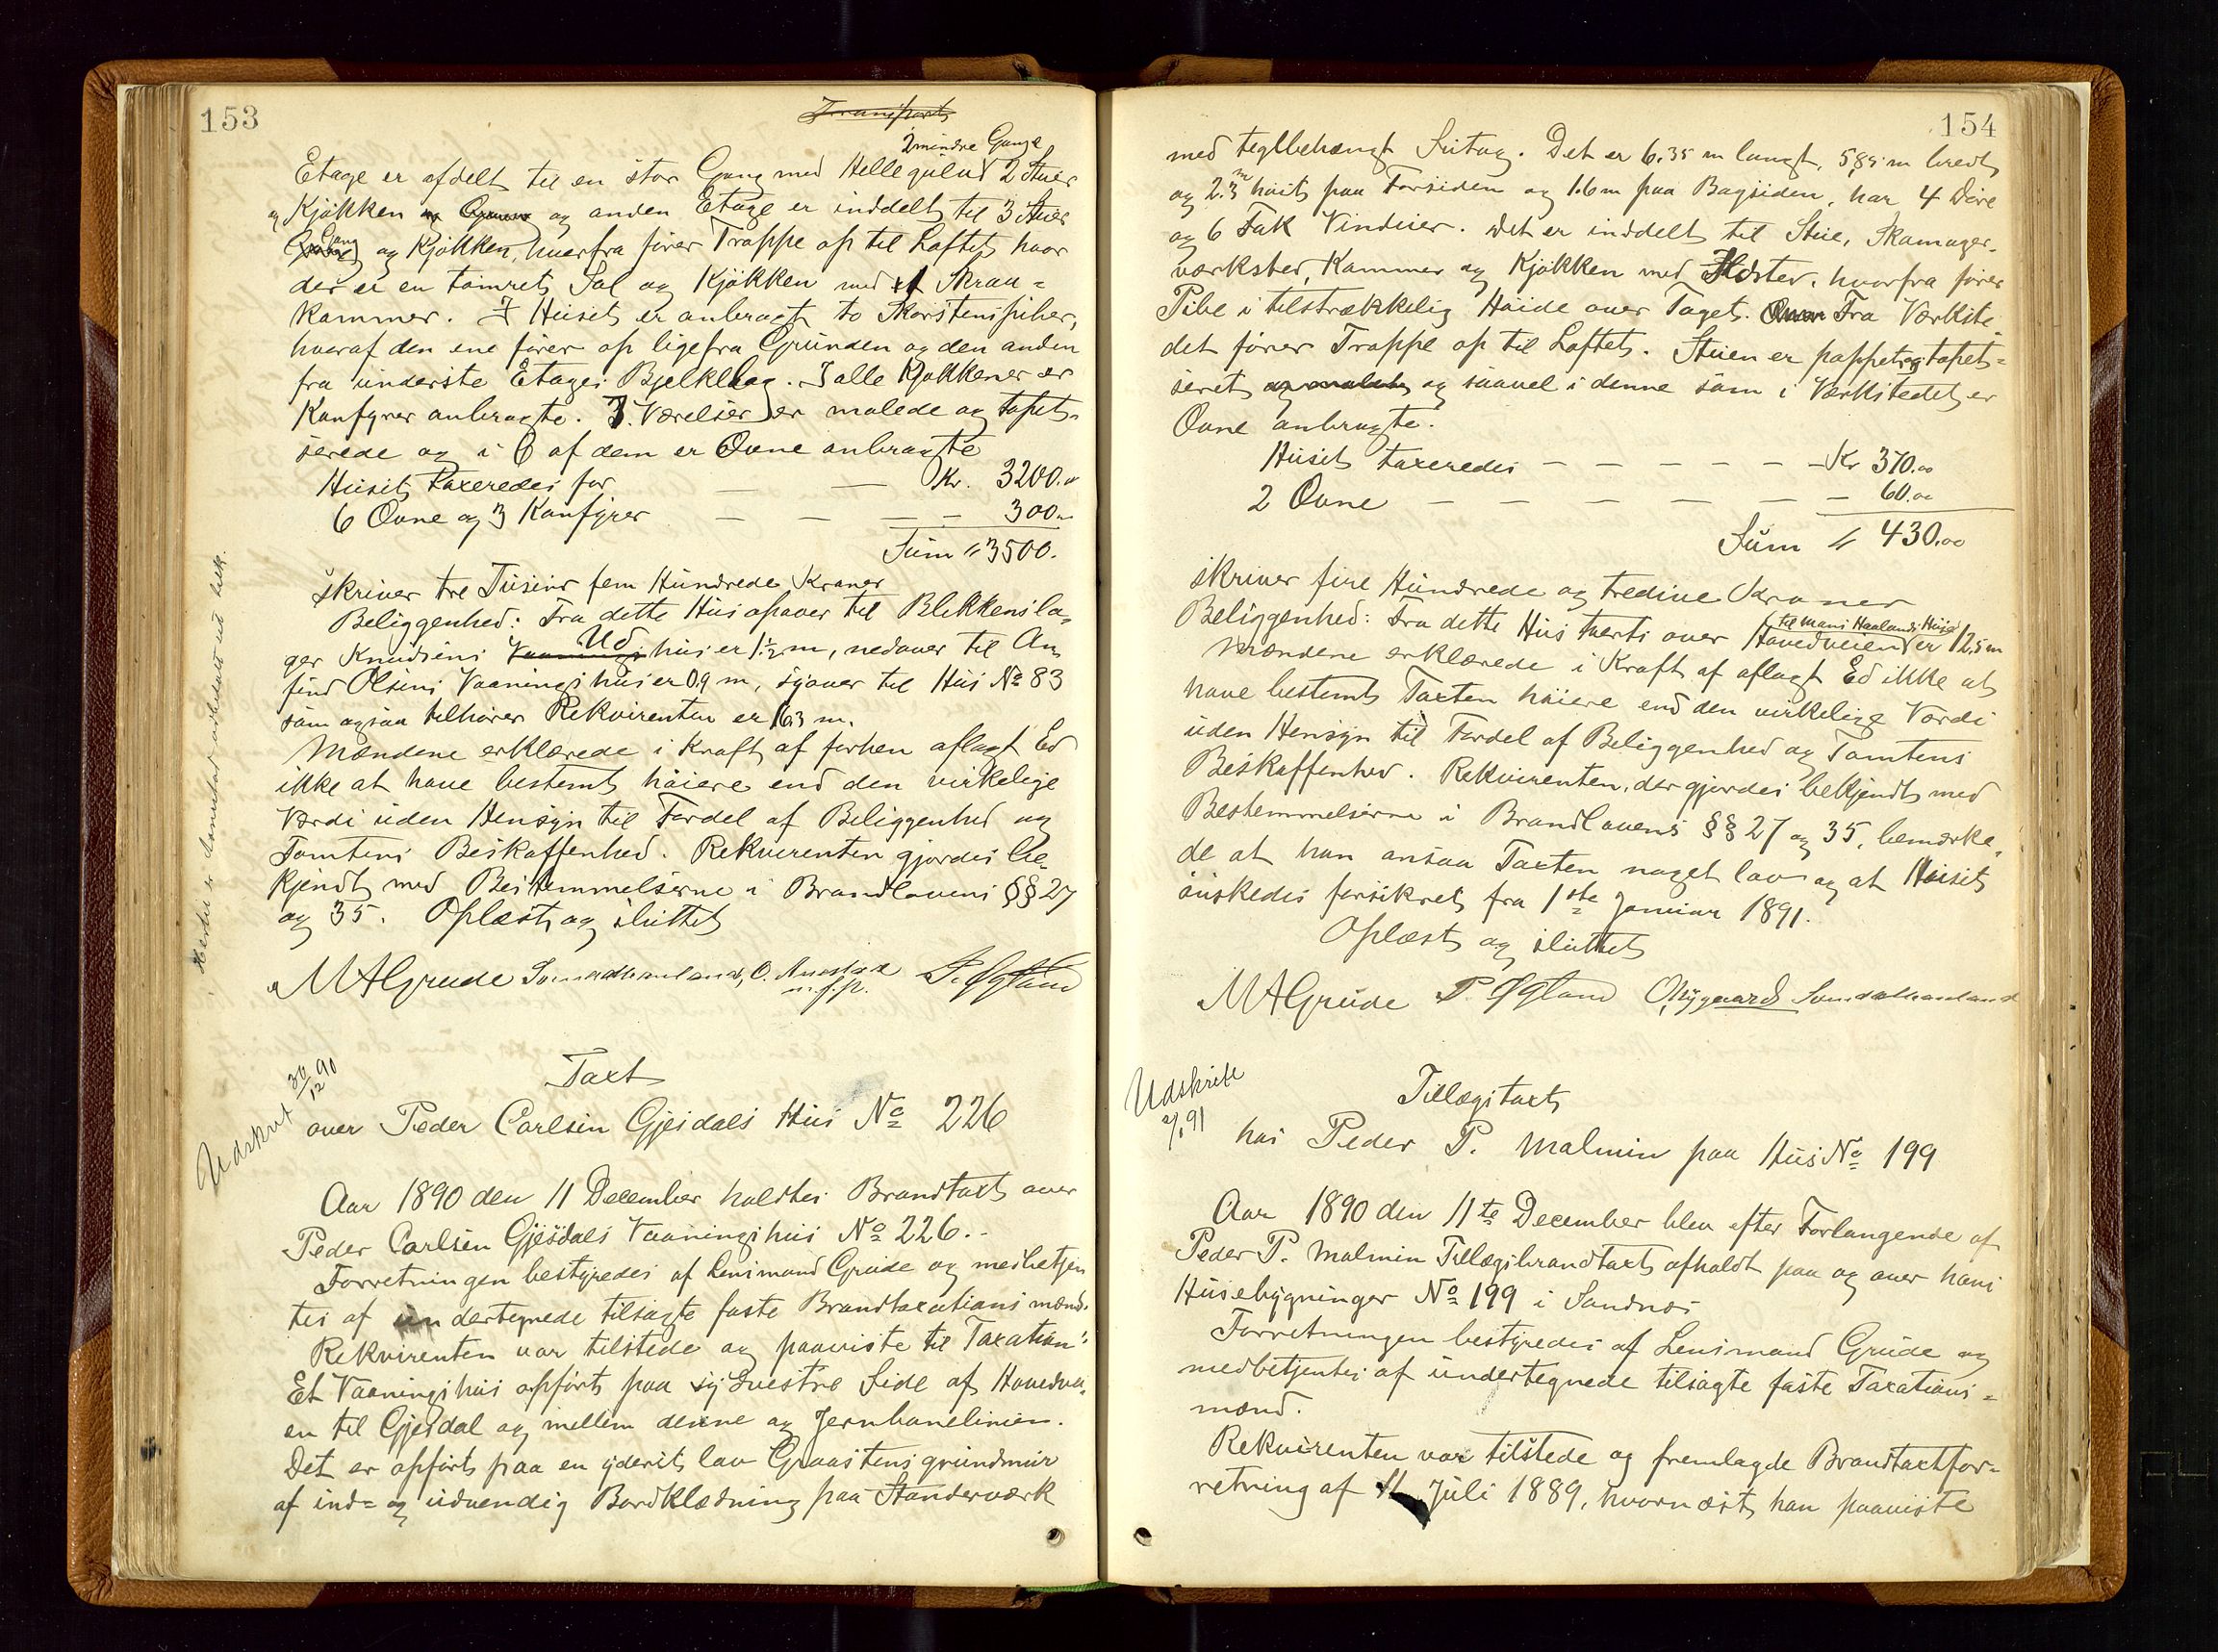 153
Transport
2 mindre Gange
Etage er afdelt til en stor Gang med Hellegulv 2 Stuer
og Kjøkken og anden Etage er inddelt til 3 Stuer
Gang og Kjøkken, hvorfra fører Trappe op til Loftet, hvor
der er en tømret Sal og Kjøkken med 1 Skraa=
kammer. I Huset er anbragt to Skorstenspiber,
hvoraf den ene fører op ligefra Grunden og den anden
fra underste Etages Bjelkelag. I alle Kjøkkener er
Komfyrer anbragte. 7 Værelser er malede og tapet=
serede og i 6 af dem er Ovne anbragte
Huset taxeredes for — — Kr. 3200.00
6 Ovne og 3 Komfyrer — — — — 300.00
Sum " 3500.
skriver tre Tusind fem Hundrede Kroner
Beliggenhed: Fra dette Hus opover til Blikkensla=
ger Knudsens Udhus er 1½ m, nedover til An
find Olsens Vaaningshus er 0.9 m, syover til Hus No 83
som ogsaa tilhører Rekvirenten er 16.3 m.
Mændene erklærede i Kraft af forhen aflagt Ed
ikke at have bestemt høiere end den virkelige
Værdi uden Hensyn til Fordel af Beliggenhed og
Tomtens Beskaffenhed. Rekvirenten gjordes be=
kjendt med Bestemmelserne i Brandlovens §§ 27
og 35. Oplæst og sluttet
M A Grude O. P. Øgland
m.f.p.
Udskrevet 30/12 90
Taxt
over Peder Carlsen Gjesdals Hus No 226
Aar 1890 den 11 December holdtes Brandtaxt over
Peder Carlsen Gjesdals Vaaningshus No 226.-
Forretningen bestyredes af Lensmand Grude og medbetjen
tes af undertegnede tilsagte faste Brandtaxationsmænd.
Rekvirenten var tilstede og paaviste til Taxation:
Et Vaaningshus opført paa sydvestre Side af Hovedvei=
en til Gjesdal og mellem denne og Jernbanelinien.
Det er opført paa en yderst lav Graastensgrundmur
af ind= og udvendig Bordklædning paa Standerværk
154
med teglbehængt Sutag. Det er 6.35 m langt, 5.85 m bredt
og 2.3 m høit paa Forsiden og 1.6 m paa Bagsiden, har 4 Døre
og 6 Fak Vinduer. Det er inddelt til Stue, Skomager=
værksted, Kammer og Kjøkken med Ildsted, hvorfra fører
Pibe i tilstrækkelig Høide over Taget. Fra Værkste
det fører Trappe op til Loftet. Stuen er pappet og tapet=
seret og saavel i denne som i Værkstedet er
Ovne anbragte.
Huset taxeredes — — — — — — Kr 370.00
2 Ovne — — — — — — — 60.00
Sum " 430.00
skriver fire Hundrede og tredive Kroner
Beliggenhed: Fra dette Hus tverts over Hovedveien til Mons Haalands Hus er 12.5 m
Mændene erklærede i Kraft af aflagt Ed ikke at
have bestemt Taxten høiere end den virkelige Værdi
uden Hensyn til Fordel af Beliggenhed og Tomtens
Beskaffenhed. Rekvirenten, der gjordes bekjendt med
Bestemmelserne i Brandlovens §§ 27 og 35, bemærke=
de at han ansaa Taxten noget lav og at Huset
ønskedes forsikret fra 1ste Januar 1891.
Oplæst og sluttet
M A Grude P. Øgland O. Nygaard
Udskrift
2/1 91
Tillægstaxt
hos Peder P. Malmin paa Hus No 199
Aar 1890 den 11te December blev efter Forlangende af
Peder P. Malmin Tillægsbrandtaxt afholdt paa og over hans
Husebygninger No 199 i Sandnes
Forretningen bestyredes af Lensmand Grude og
medbetjentes af undertegnede tilsagte faste Taxations=
mænd.
Rekvirenten var tilstede og fremlagde Brandtaxtfor=
retning af 11 Juli 1889, hvornæst han paaviste